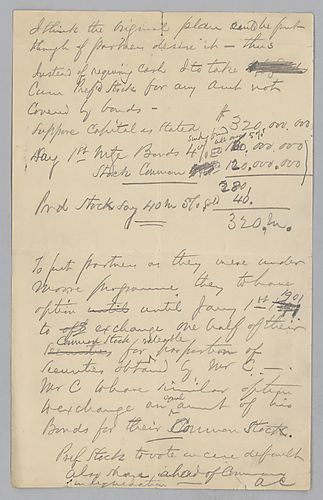 I think the original plan can be put
through if partners desire it — thus
Instead of requiring Cash I to take
Cum Prefd Stock for any amt not
Covered by bonds —
Suppose Capital as stated $ 320,000,000.
Say 1st Mtg Bonds 4% 160,000,000
Stock Common 120,000,000
280
Prfd Stock say 40 M 5% gd 40.
320.M.
To put partners as they were under
Moore programme, they to have
option until Jany 1st 1901
to exchange one half of their
Common Stock for proportion of
Securities obtained by Mr C. —
Mr C to have similar option
to exchange an equal amt of his
Bonds for their Common Stock.
Pref Stock to vote in case default
also share ahead of Common
in liquidation
AC